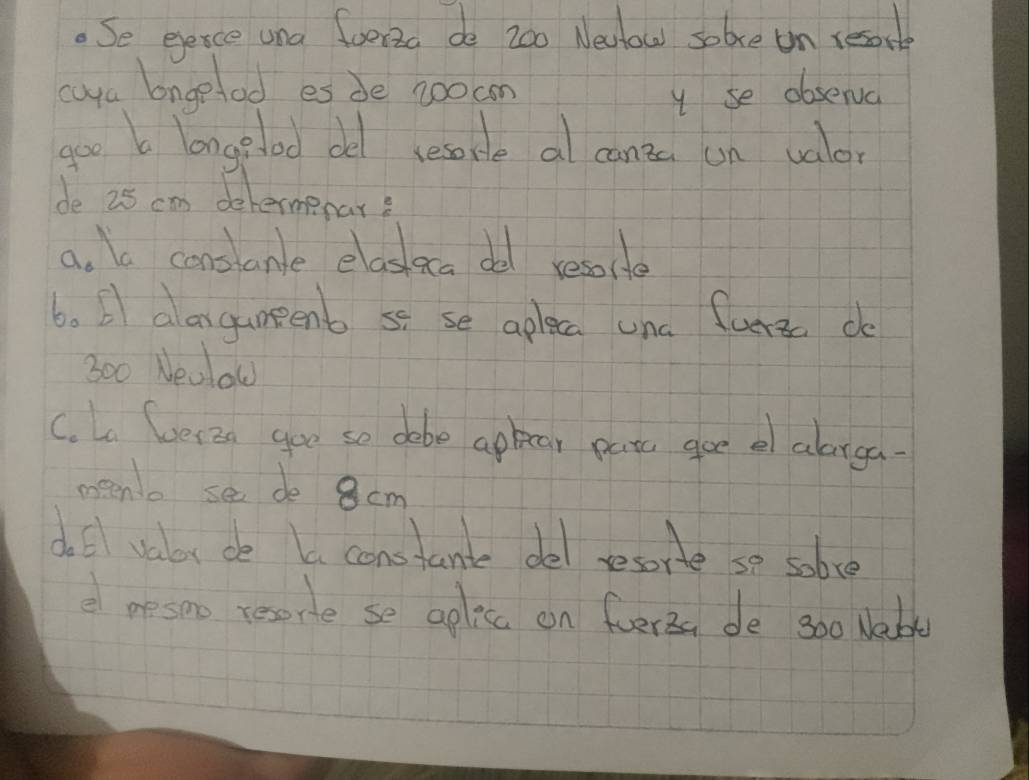 • Se ejerce una fuerza de 200 Newtow sobre un resorte
cuya longitud es de 200 cm y se observa
que la longitud del resorte alcanza un valor
de 25 cm determinar:
a. la constante elastica del resorte
b. El alargamiento si se aplica una fuerza de
300 Newtow
C. La fuerza que se debe aplicar para que el alarga-
miento sea de 8 cm
d. El valor de la constante del resorte si sobre
el mismo resorte se aplica un fuerza de 300 Newtow